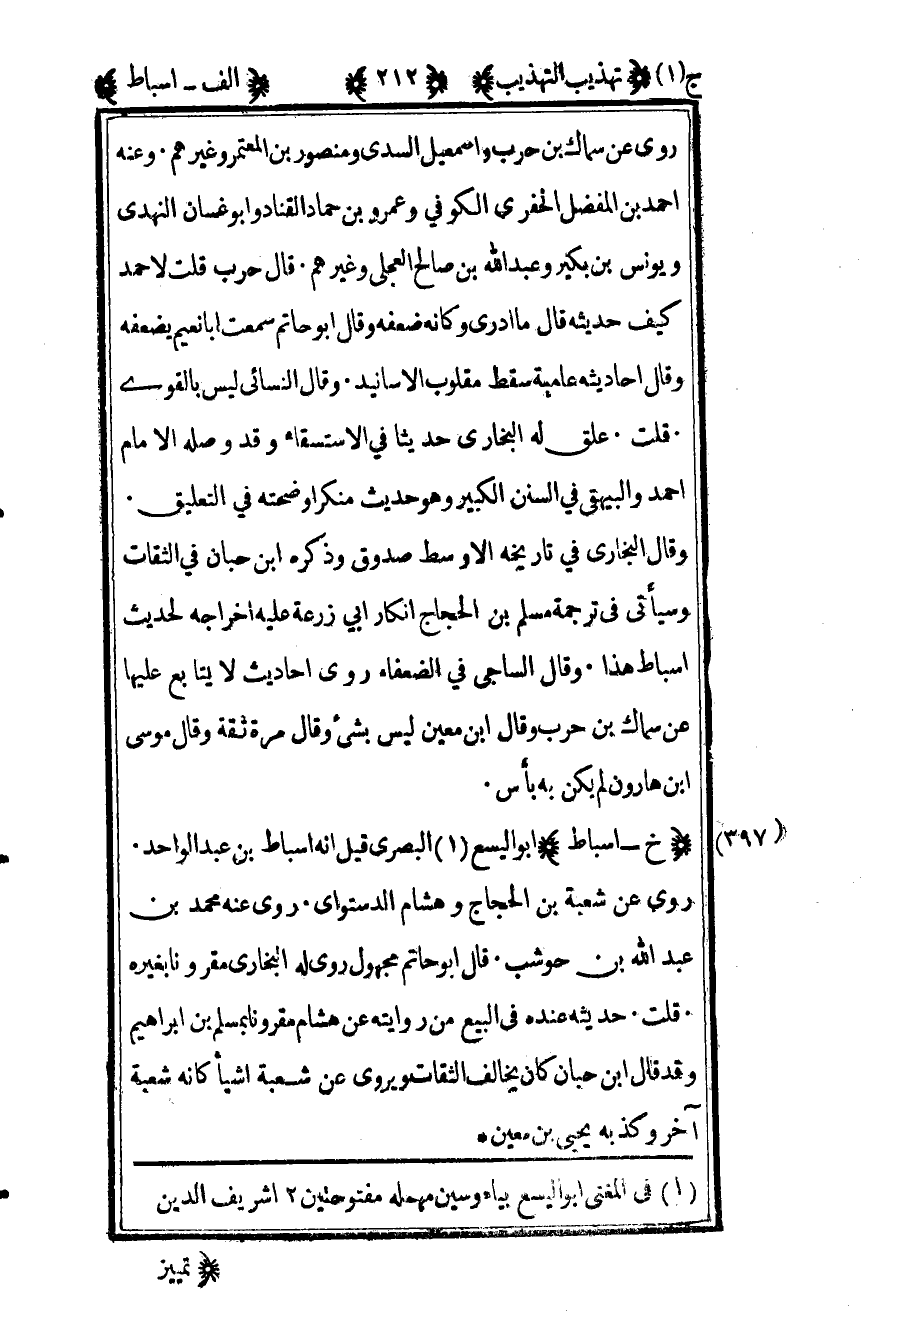 ج(١) ﴿ تهذيب التهذيب ﴾ ﴿ ٢١٢ ﴾ ﴿ الف ـ اسباط ﴾
روى عن سماك بن حرب واسمعيل السدى ومنصور بن المعتمر وغير هم ٠ وعنه
احمد بن المفضل الحفرى الكوفي وعمرو بن حماد القناد وابو غسان النهدى
ويونس بن بكير وعبد الله بن صالح العجلى وغير هم ٠ قال حرب قلت لاحمد
كيف حديثه قال ما ادرى وكانه ضعفه وقال ابو حاتم سمعت ابا نعيم يضعفه
وقال احاديثه عامية سقط مقلوب الاسانيد ٠ وقال النسائى ليس بالقوى
٠ قلت ٠ علق له البخارى حديثا في الاستسقاء وقد وصله الامام
احمد والبيهقى في السنن الكبير وهو حديث منكر اوضحته في التعليق ٠
وقال البخارى في تاريخه الاوسط صدوق وذكره ابن حبان في الثقات
وسيأتى فى ترجمة مسلم بن الحجاج انكار ابي زرعة عليه اخراجه لحديث
اسباط هذا ٠ وقال الساجى في الضعفاء روى احاديث لا يتابع عليها
عن سماك بن حرب وقال ابن معين ليس بشئ وقال مرة ثقة وقال موسى
ابن هارون لم يكن به بأس ٠
﴿ خ ـ اسباط ﴾ ابو اليسع (١) البصرى قيل انه اسباط بن عبد الواحد ٠ (٣٩٧)
روي عن شعبة بن الحجاج وهشام الدستواى ٠ روى عنه محمد بن
عبد الله بن حوشب ٠ قال ابو حاتم مجهول روى له البخارى مقرونا بغيره
٠ قلت ٠ حديثه عنده فى البيع من روايته عن هشام مقرونا بمسلم بن ابراهيم
وقد قال ابن حبان كان يخالف الثقات ويروى عن شعبة اشيأ كانه شعبة
آخر وكذبه يحيى بن معين *
(١) فى المغنى ابو اليسع بياء وسين مهمله مفتوحتين ١٢ شريف الدين
﴿ تمييز